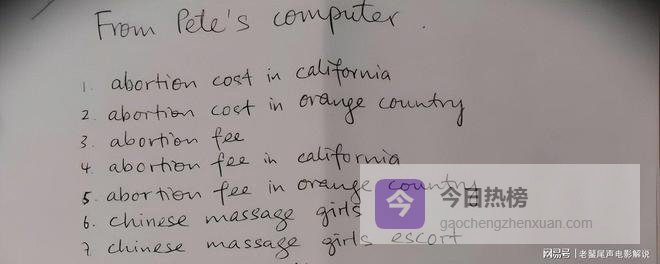 From Pete's computer.
1. abortion cost in california
2. abortion cost in orange country
3. abortion fee
4. abortion fee in california
5. abortion fee in orange country
6. chinese massage girls
7. chinese massage girls escort
今 今日热榜
gaochengzhenxuan.com
网易号 | 老鳖尾声电影解说